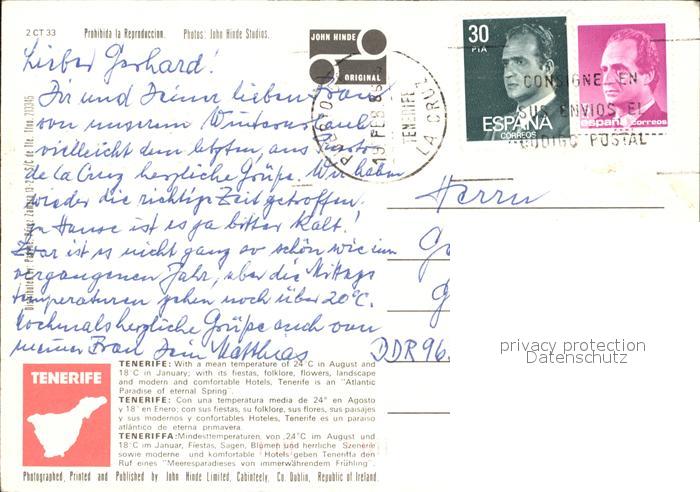 2 CT 33
Prohibida la Reproduccion. Photos: John Hinde Studios.
JOHN HINDE
ORIGINAL
30
PTA
ESPAÑA
CORREOS
españa correos
CONSIGNE EN
SUS ENVIOS EL
CODIGO POSTAL
PUERTO
LA CRUZ
TENERIFE
FEB 86
Lieber Gerhard!
Dir und Deiner lieben Frau
von unserem Winterurlaub
vielleicht dem letzten, aus Puerto
de la Cruz herzliche Grüße. Wir haben
wieder die richtige Zeit getroffen.
Zu Hause ist es ja bitter kalt!
Zwar ist es nicht ganz so schön wie im
vergangenen Jahr, aber die Mittags
temperaturen gehen noch über 20°C.
Nochmals herzliche Grüße auch von
meiner Frau Dein Matthias
Herrn
G
G
DDR 96
privacy protection
Datenschutz
TENERIFE
TENERIFE: With a mean temperature of 24°C in August and
18°C in January; with its fiestas, folklore, flowers, landscape
and modern and comfortable Hotels, Tenerife is an "Atlantic
Paradise of eternal Spring".
TENERIFE: Con una temperatura media de 24° en Agosto
y 18° en Enero; con sus fiestas, su folklore, sus flores, sus paisajes
y sus modernos y confortables Hoteles, Tenerife es un paraiso
atlántico de eterna primavera.
TENERIFFA: Mindesttemperaturen von 24°C im August und
18°C im Januar, Fiestas, Sagen, Blumen und herrliche Szenerie
sowie moderne und komfortable Hotels geben Teneriffa den
Ruf eines "Meeresparadieses von immerwährendem Frühling".
Photographed, Printed and Published by John Hinde Limited, Cabinteely, Co. Dublin, Republic of Ireland.